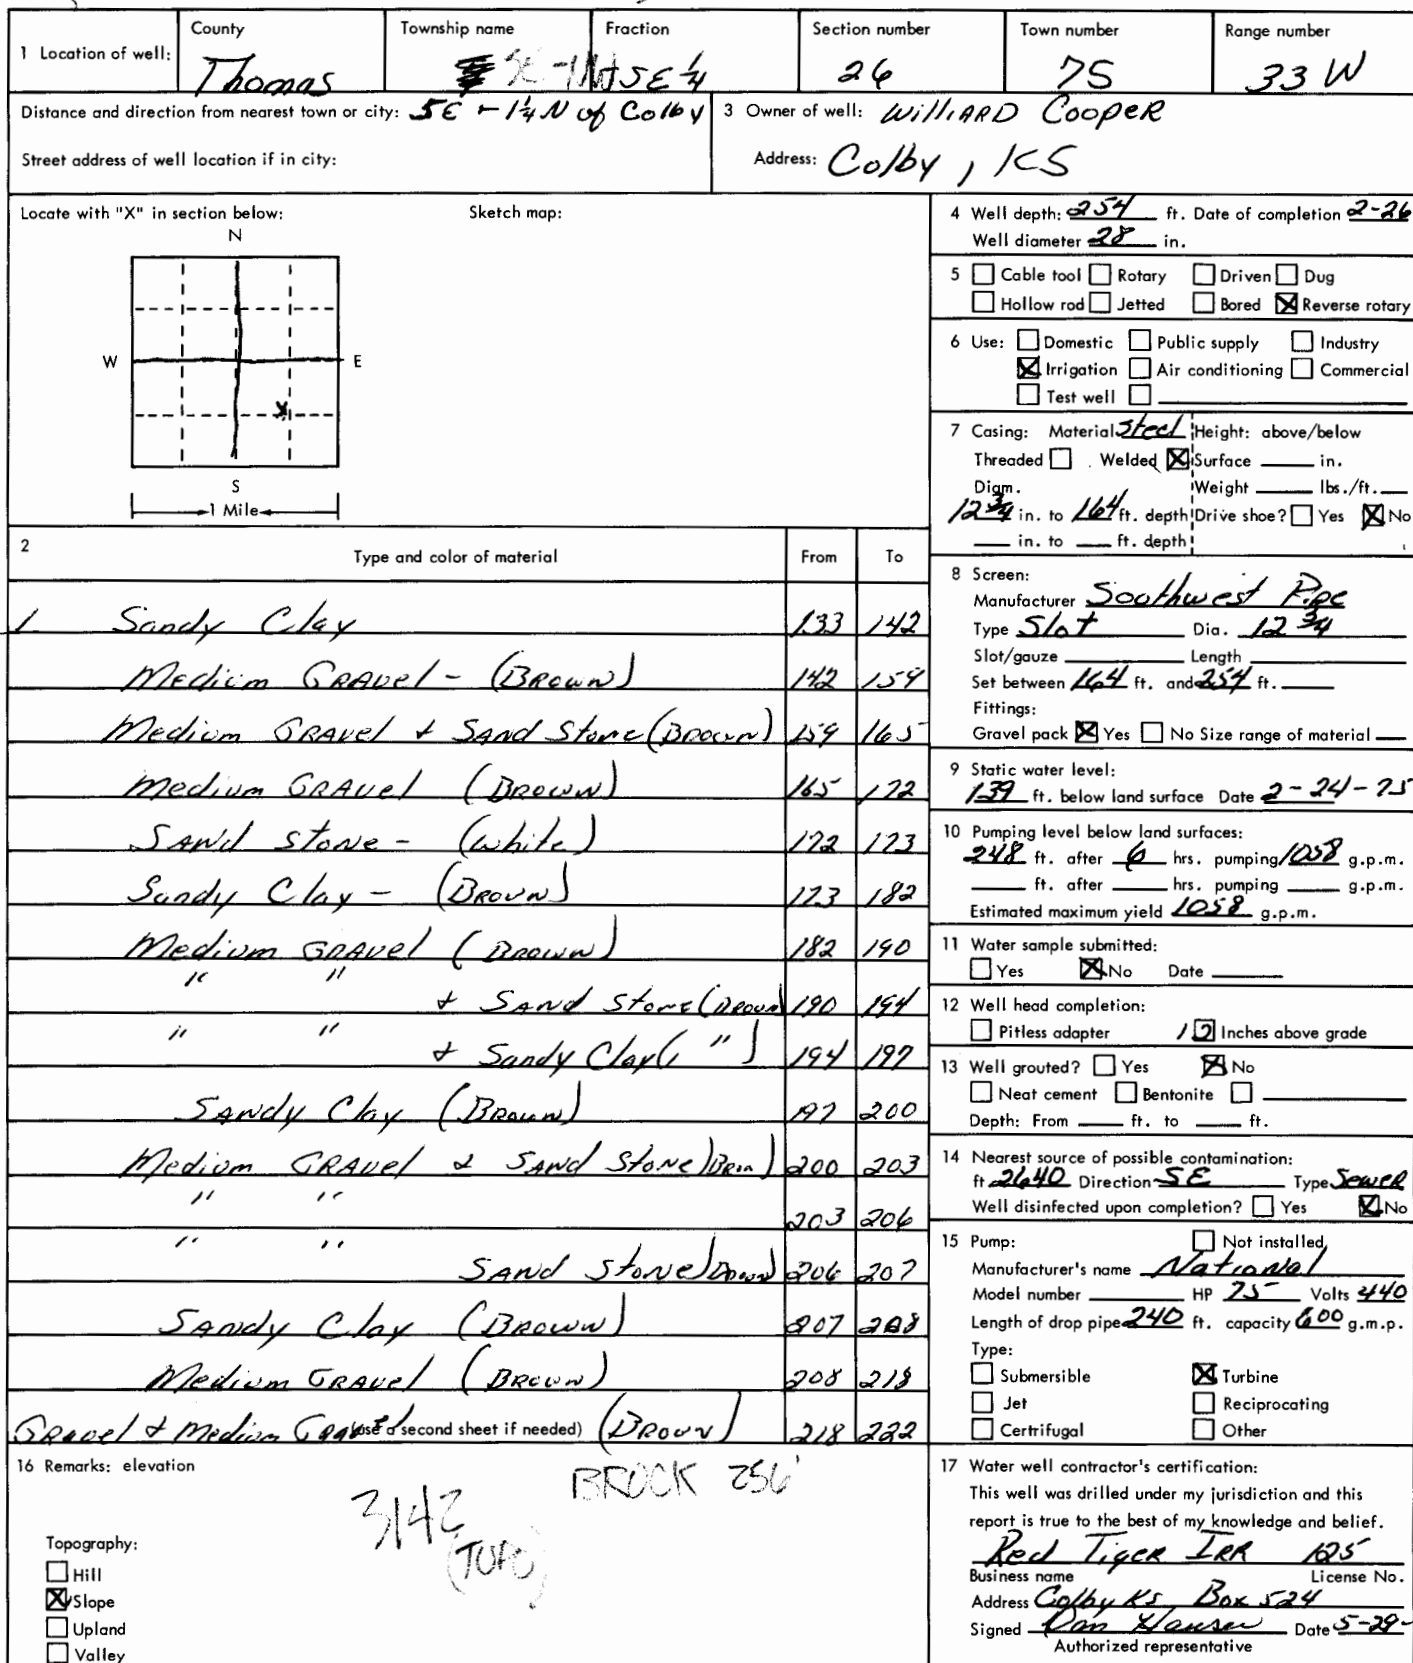 County Township name Fraction Section number Town number Range number
1 Location of well: Thomas SE 1/4 26 7S 33 W
Distance and direction from nearest town or city: 5E - 1 1/4 N of Colby
3 Owner of well: WilliARD CoopeR
Street address of well location if in city:
Address: Colby, KS
Locate with "X" in section below: Sketch map:
N
W E
X
S
1 Mile
2 Type and color of material From To
1 Sandy Clay 133 142
Medium GRAVel - (BROWN) 142 159
Medium GRAVel & SAND Stone (BROWN) 159 165
Medium GRAVel (BROWN) 165 172
SANd stoNe - (white) 172 173
Sandy Clay - (BROWN) 173 182
Medium GRAVel (BROWN) 182 190
" " & SANd Stone (BROWN) 190 194
" " & Sandy Clay ( " ) 194 197
SANdy Clay (BROWN) 197 200
Medium GRAVel & SANd Stone (Brn) 200 203
" " 203 206
" " SANd stoNe (Brown) 206 207
SANdy Clay (BROWN) 207 208
Medium GRAVel (BROWN) 208 218
GRAvel & Medium GRAvel (use a second sheet if needed) (BROWN) 218 222
4 Well depth: 254 ft. Date of completion 2-26
Well diameter 28 in.
5 Cable tool Rotary Driven Dug
Hollow rod Jetted Bored X Reverse rotary
6 Use: Domestic Public supply Industry
X Irrigation Air conditioning Commercial
Test well
7 Casing: Material Steel Height: above/below
Threaded Welded X Surface in.
Diam. Weight lbs./ft.
12 3/4 in. to 164 ft. depth Drive shoe? Yes X No
in. to ft. depth
8 Screen:
Manufacturer Soothwest Pipe
Type Slot Dia. 12 3/4
Slot/gauze Length
Set between 164 ft. and 254 ft.
Fittings:
Gravel pack X Yes No Size range of material
9 Static water level:
139 ft. below land surface Date 2-24-75
10 Pumping level below land surfaces:
248 ft. after 6 hrs. pumping 1058 g.p.m.
ft. after hrs. pumping g.p.m.
Estimated maximum yield 1058 g.p.m.
11 Water sample submitted:
Yes X No Date
12 Well head completion:
Pitless adapter 12 Inches above grade
13 Well grouted? Yes X No
Neat cement Bentonite
Depth: From ft. to ft.
14 Nearest source of possible contamination:
ft 2640 Direction SE Type SeweR
Well disinfected upon completion? Yes X No
15 Pump: Not installed
Manufacturer's name National
Model number HP 75 Volts 440
Length of drop pipe 240 ft. capacity 600 g.m.p.
Type:
Submersible X Turbine
Jet Reciprocating
Certrifugal Other
16 Remarks: elevation
BROCK 256'
3142
(TOPO)
Topography:
Hill
X Slope
Upland
Valley
17 Water well contractor's certification:
This well was drilled under my jurisdiction and this
report is true to the best of my knowledge and belief.
Red TigeR IRR 125
Business name License No.
Address Colby Ks Box 524
Signed Date 5-29-
Authorized representative